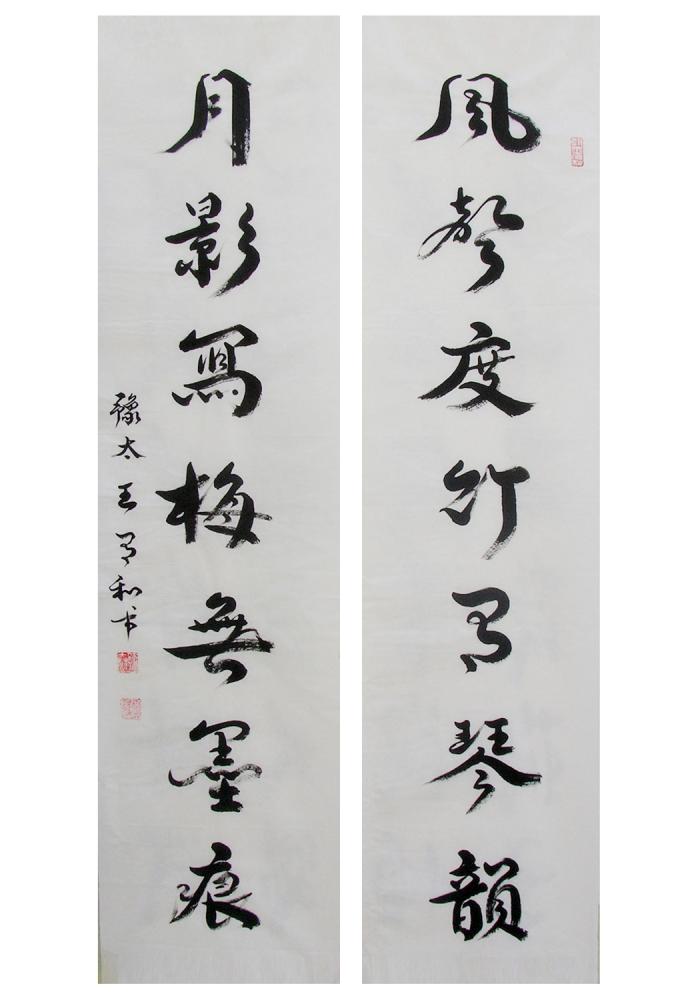 風聲度竹有琴韻
月影寫梅無墨痕
豫太王有和书